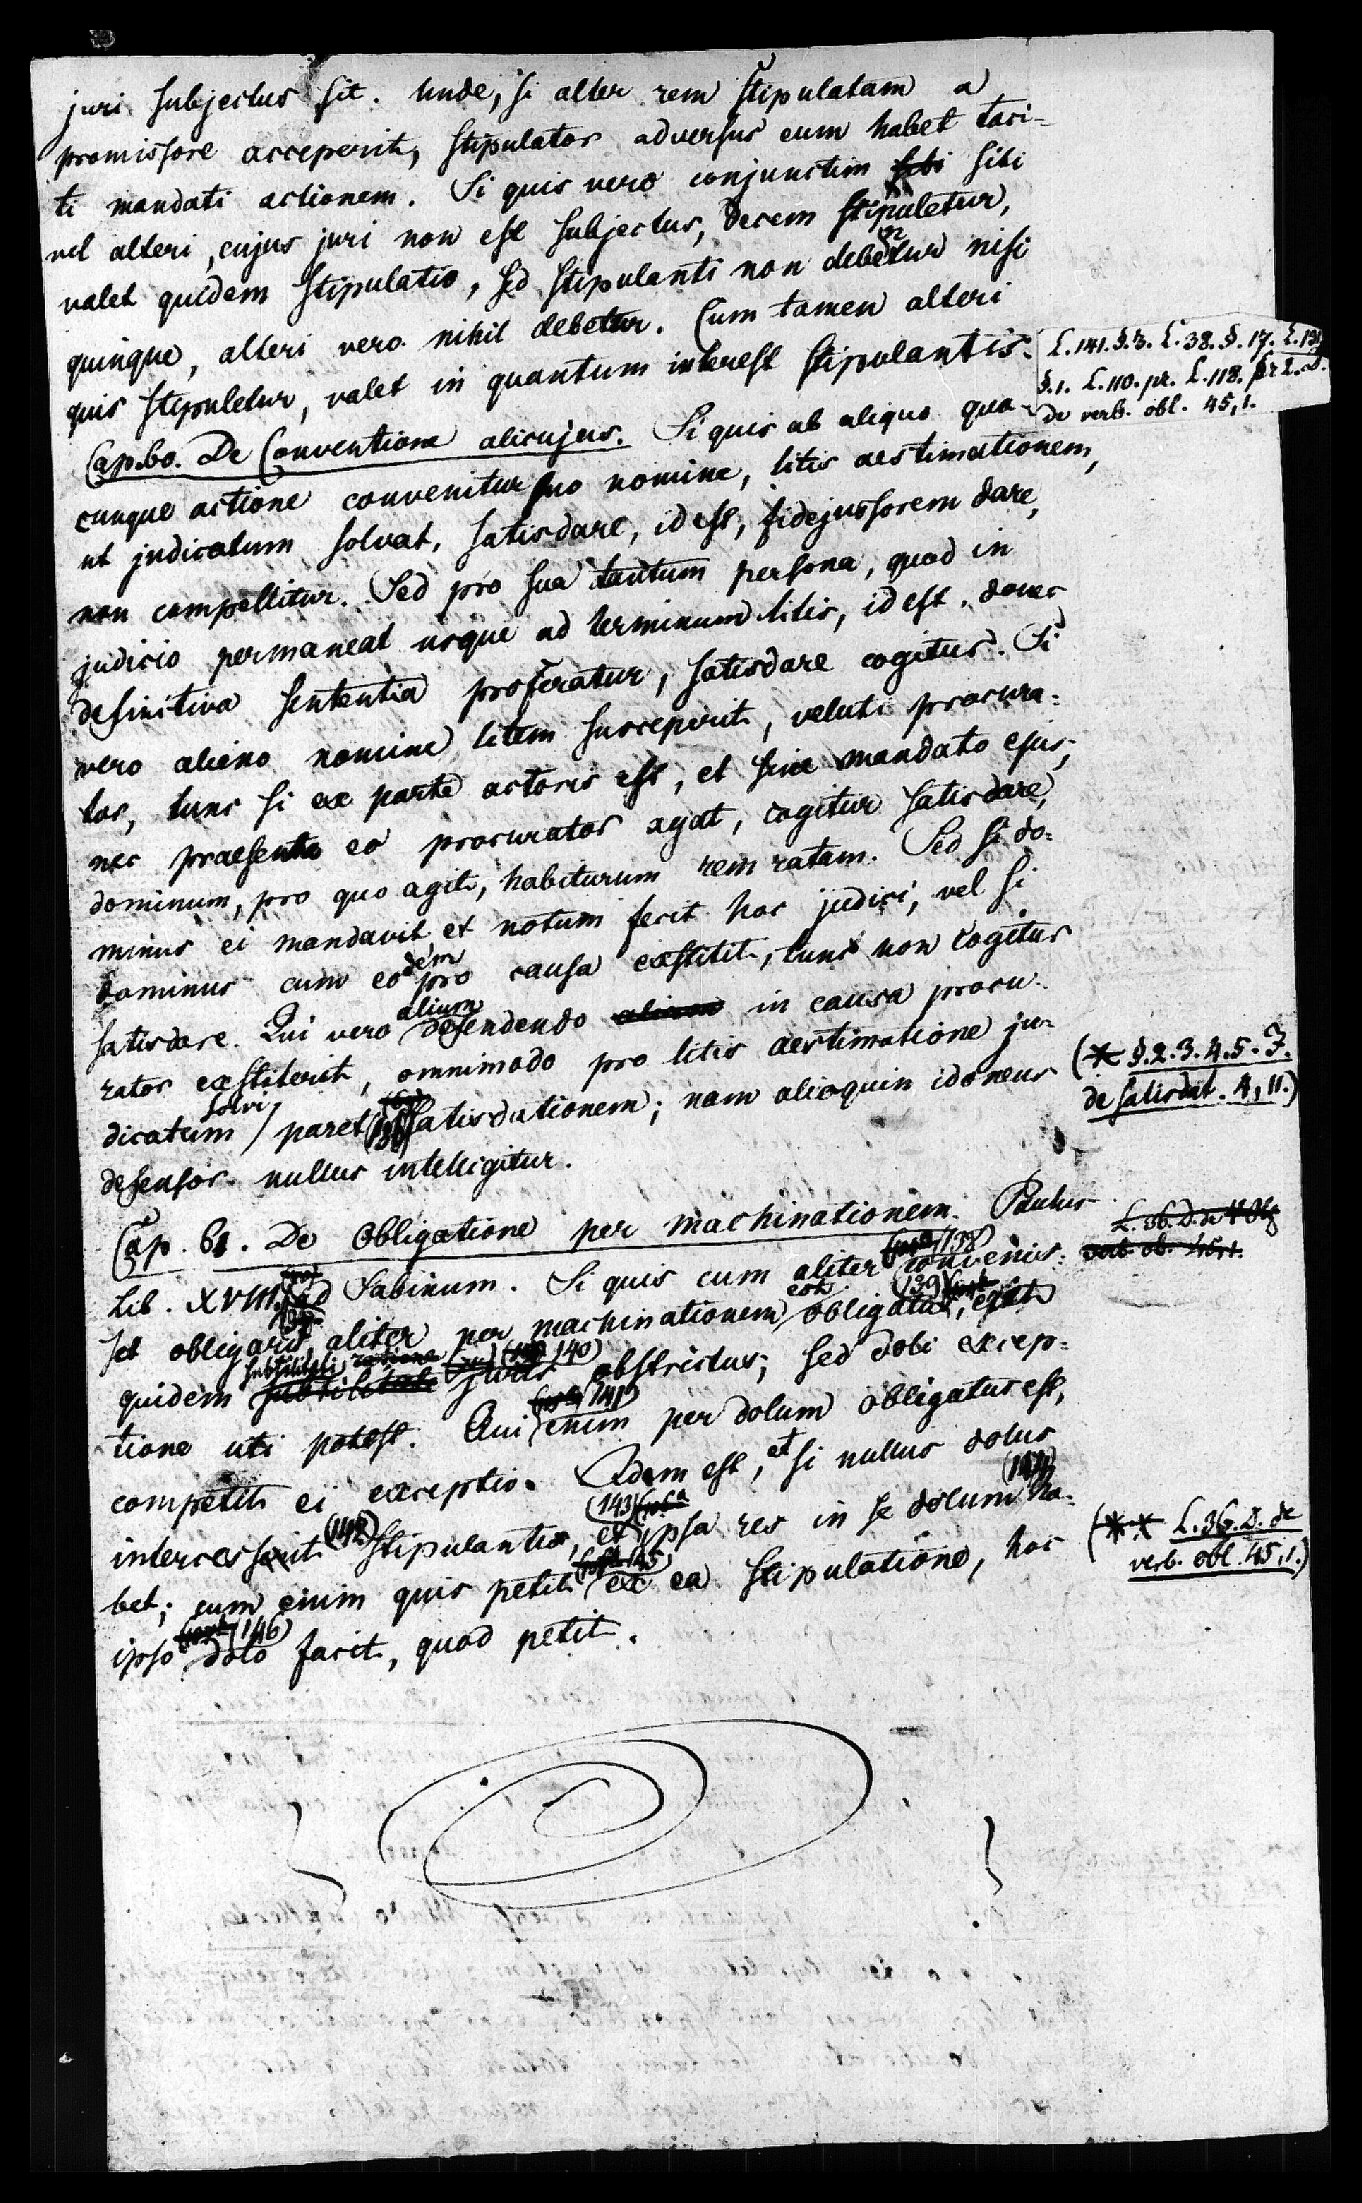 juri subjectus sit. Unde, si alter rem stipulatam a
promissore acceperit, stipulator adversus eum habet taci-
ti mandati actionem. Si quis vero conjunctim sibi
vel alteri, cujus juri non est subjectus, decem stipuletur,
valet quidem stipulatio, sed stipulanti non debentur nisi
quinque, alteri vero nihil debetur. Cum tamen alteri
quis stipuletur, valet in quantum interest stipulantis.
L. 141. §. 3. L. 38. §. 17. L. 131.
§. 1. L. 110. pr. L. 118.
de verb. obl. 45, 1.
Cap. 60. De Conventione alicujus. Si quis ab aliquo qua-
cunque actione convenitur suo nomine, litis aestimationem,
ut judicatum solvat, satisdare, id est, fidejussorem dare,
non compellitur. Sed pro sua tantum persona, quod in
judicio permaneat usque ad terminum litis, id est, donec
definitiva sententia proferatur, satisdare cogitur. Si
vero alieno nomine litem susceperit, veluti procura-
tor, tunc si ex parte actoris est, et sine mandato ejus,
nec praesente eo procurator agat, cogitur satisdare,
dominum, pro quo agit, habiturum rem ratam. Sed si do-
minus ei mandavit et notum fecit hoc judici, vel si
dominus cum eodem pro causa exstitit, tunc non cogitur
satisdare. Qui vero alium defendendo in causa procu-
rator exstiterit, omnimodo pro litis aestimatione ju-
dicatum solvi paret satisdationem; nam alioquin idoneus
defensor nullus intelligitur.
(* §. 2. 3. 4. 5. J.
de satisdat. 4, 11.)
Cap. 61. De Obligatione per machinationem. Paulus
L. 36. D. de V. Obl
verb. ob. 45, 1.
Lib. XVIII. ad Sabinum. Si quis cum aliter (138) convenis-
set obligari, aliter per machinationem obligatus (139) est, erit
quidem subtilitati juris (140) obstrictus; sed doli excep-
tione uti potest. Qui (141) enim per dolum obligatus est,
competit ei exceptio. Idem est, et si nullus dolus
intercessit (142) stipulantis, (143) et ipsa res in se dolum (144) ha-
bet; cum enim quis petit (145) ex ea stipulatione, hoc
ipso (146) dolo facit, quod petit.
(** L. 36. D. de
verb. obl. 45, 1.)